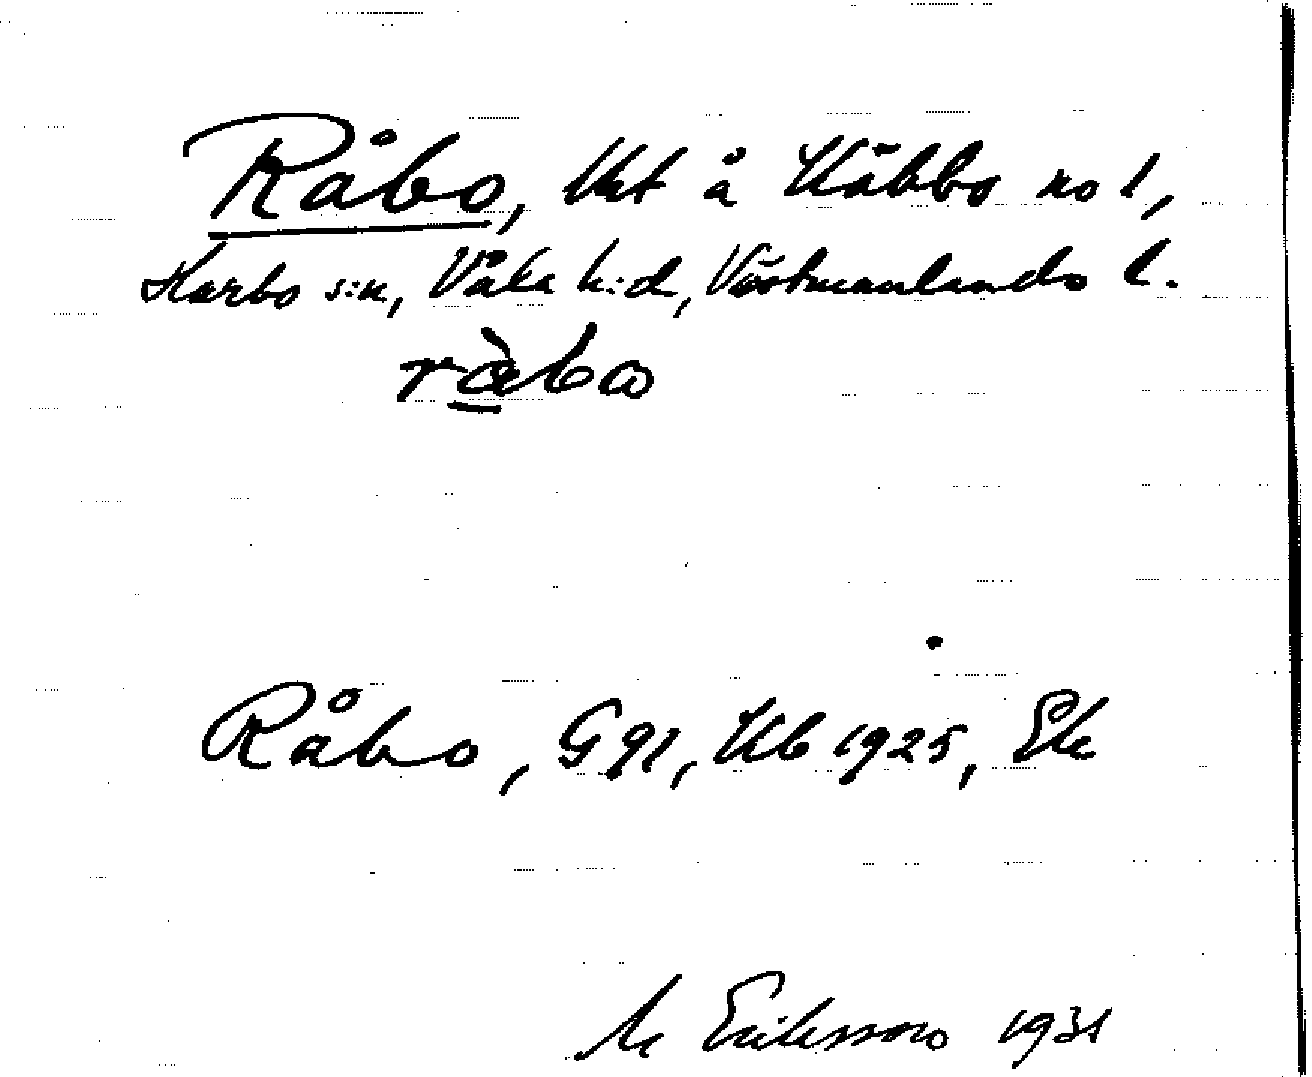 Råbo, lht å Käbbo no 1,
Harbo s:n, Våla h:d, Västmanlands l.
råbo
Råbo, G 91, Kb 1925, Ek
M Eriksson 1931